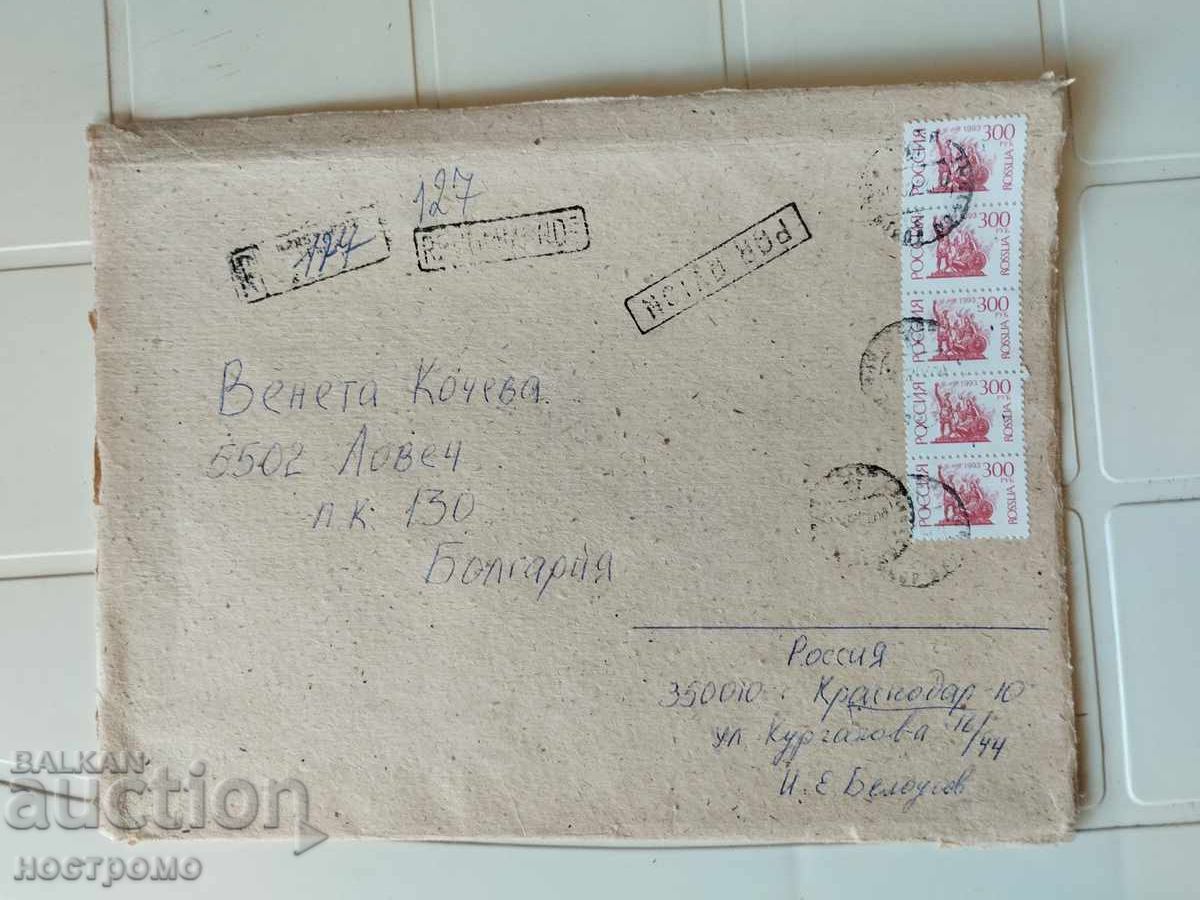 127
174
RECOMMANDE
PAR AVION
РОССИЯ 1993 300 РУБ ROSSIJA
РОССИЯ 1993 300 РУБ ROSSIJA
РОССИЯ 1993 300 РУБ ROSSIJA
РОССИЯ 1993 300 РУБ ROSSIJA
РОССИЯ 1993 300 РУБ ROSSIJA
Венета Кочева
5502 Ловеч
п.к. 130
Болгария
Россия
350010 г Краснодар-10
ул. 16/44
И. Е
BALKAN
auction
ностромо